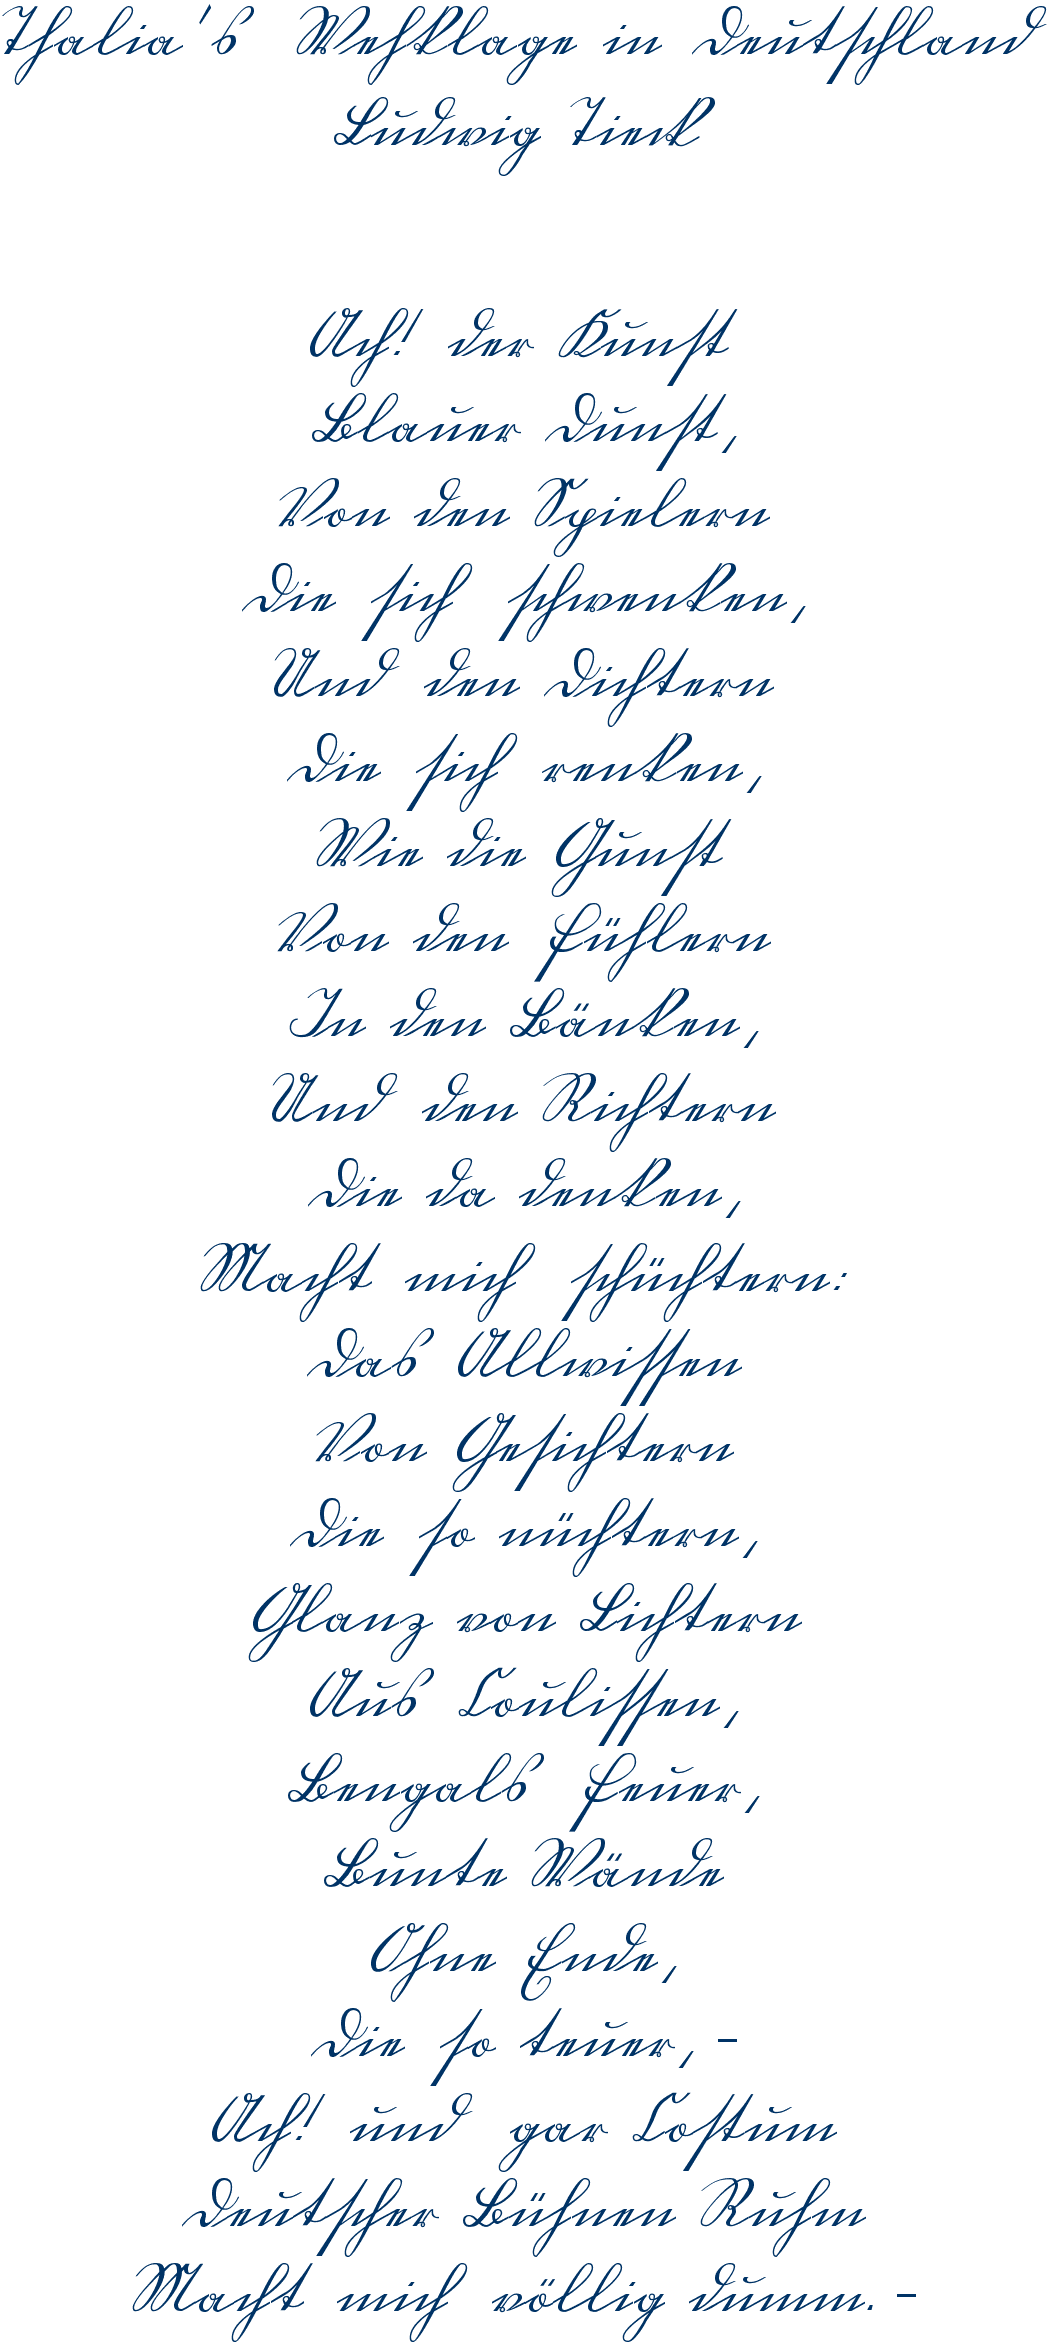 Thalia's Wehklage in Deutschland
Ludwig Tieck
Ach! der Kunst
Blauer Dunst,
Von den Spielern
Die sich schwenken,
Und den Dichtern
Die sich renken,
Wie die Gunst
Von den Fühlern
In den Bänken,
Und den Richtern
Die da denken,
Macht mich schüchtern:
Das Allwissen
Von Gesichtern
Die so nüchtern,
Glanz von Lichtern
Aus Coulissen,
Bengals Feuer,
Bunte Wände
Ohne Ende,
Die so teuer, –
Ach! und gar Costum
Deutscher Bühnen Ruhm
Macht mich völlig dumm. –